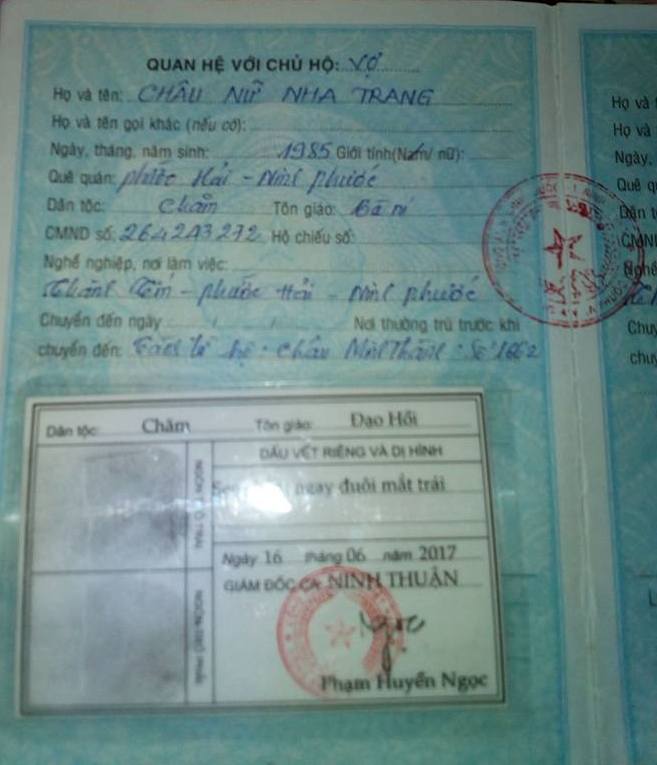 QUAN HỆ VỚI CHỦ HỘ: VỢ
Họ và tên: CHÂU NỮ NHA TRANG
Họ và tên gọi khác (nếu có):
Ngày, tháng, năm sinh: 1985 Giới tính(Nam/ nữ):
Quê quán: Phước Hải - Ninh Phước
Dân tộc: Chăm Tôn giáo: Bà ni
CMND số: 264243272 Hộ chiếu số:
Nghề nghiệp, nơi làm việc:
Thành Tín - Phước Hải - Ninh Phước
Chuyển đến ngày / / Nơi thường trú trước khi
chuyển đến: Tách từ hộ: Châu Minh Thành. Số 1662
Dân tộc: Chăm Tôn giáo: Đạo Hồi
DẤU VẾT RIÊNG VÀ DỊ HÌNH
ngay đuôi mắt trái
NGÓN TRỎ TRÁI
Ngày 16 tháng 06 năm 2017
GIÁM ĐỐC CA: NINH THUẬN
NGÓN TRỎ PHẢI
Ngọc
Phạm Huyền Ngọc
Họ và
Họ và
Ngày,
Quê q
Dân t
CMN
Nghề
Chuy
chuy